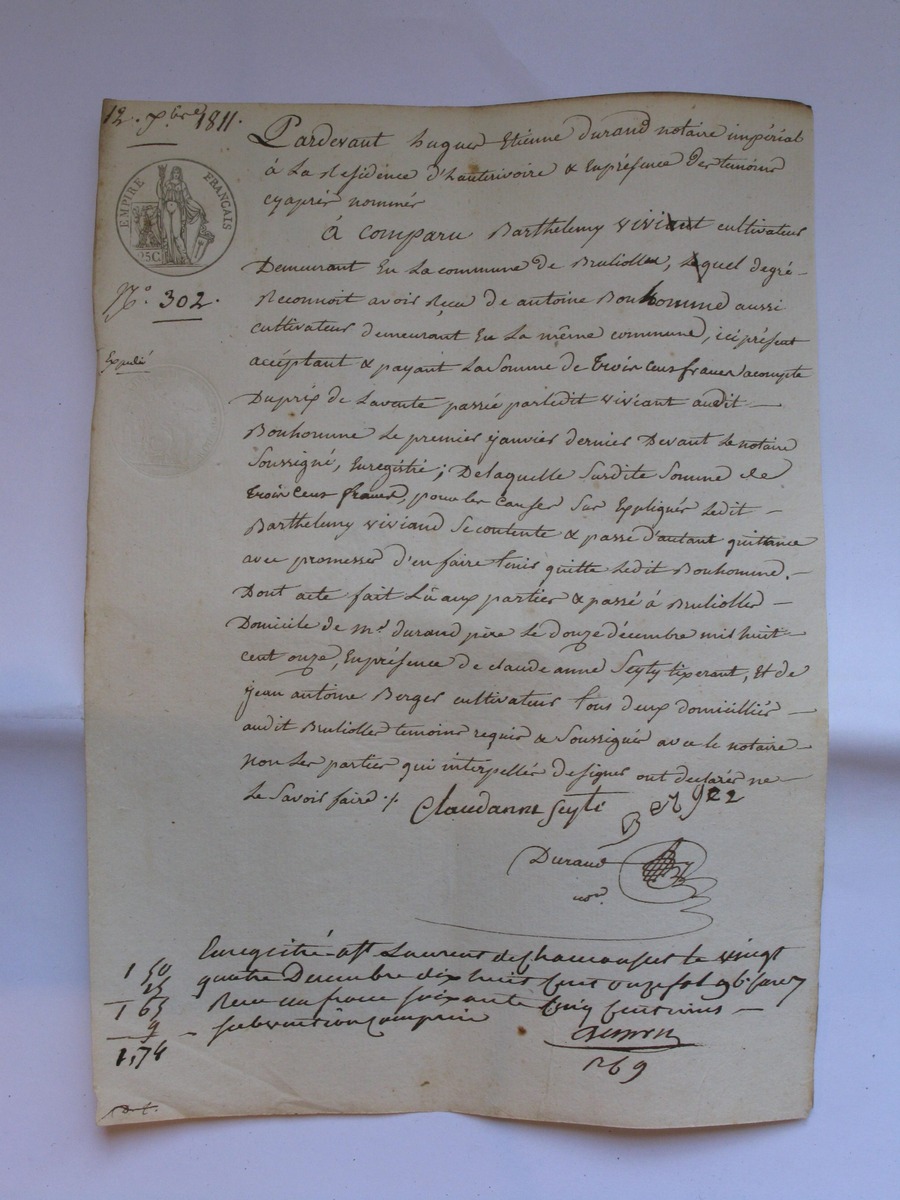 12. Xbre 1811.
EMPIRE FRANÇAIS
25C
N° 302.
Expédié
Pardevant hugues Etienne durand notaire impérial
à La Résidence d'hauterivoire & En présence des temoins
cyaprès nommés
à comparu Barthelemy viviant cultivateur
Demeurant En La commune de Brulioles, Lequel de gré
Reconnoit avoir Reçu de antoine Bonhomme aussi
cultivateur demeurant En La même commune, ici présent
acceptant & payant La Somme de trois cens francs acompte
Du prix de La vente passée par Ledit viviant audit
Bonhomme Le premier janvier dernier Devant Le notaire
Soussigné, Enregistré; De laquelle Susdite Somme de
trois cens francs, pour les causes Sus Expliqués Ledit
Barthelemy viviand Se contente & passe d'autant quittance
avec promesses d'en faire tenir quitte Ledit Bonhomme.
Dont acte fait Lû aux parties & passé à Brulioles
Domicile de Mr durand père Le douze décembre mil huit
cent onze, En présence de claude anne Seyty tixerant, Et de
jean antoine Berger cultivateur tous deux domiciliés
audit Brulioles temoins requis & Soussignés avec le notaire
non Les parties qui interpellées de signer ont declarés ne
Le Savoir faire ./.
Claudanne Seyte
Durand
nore
Enregistré a St Laurent de chamousset le vingt
quatre Decembre dix huit Cent onze fol 96
Recu un franc soixante Cinq Centimes
subvention Comprise
1 50
15
1 65
9
1,74
269